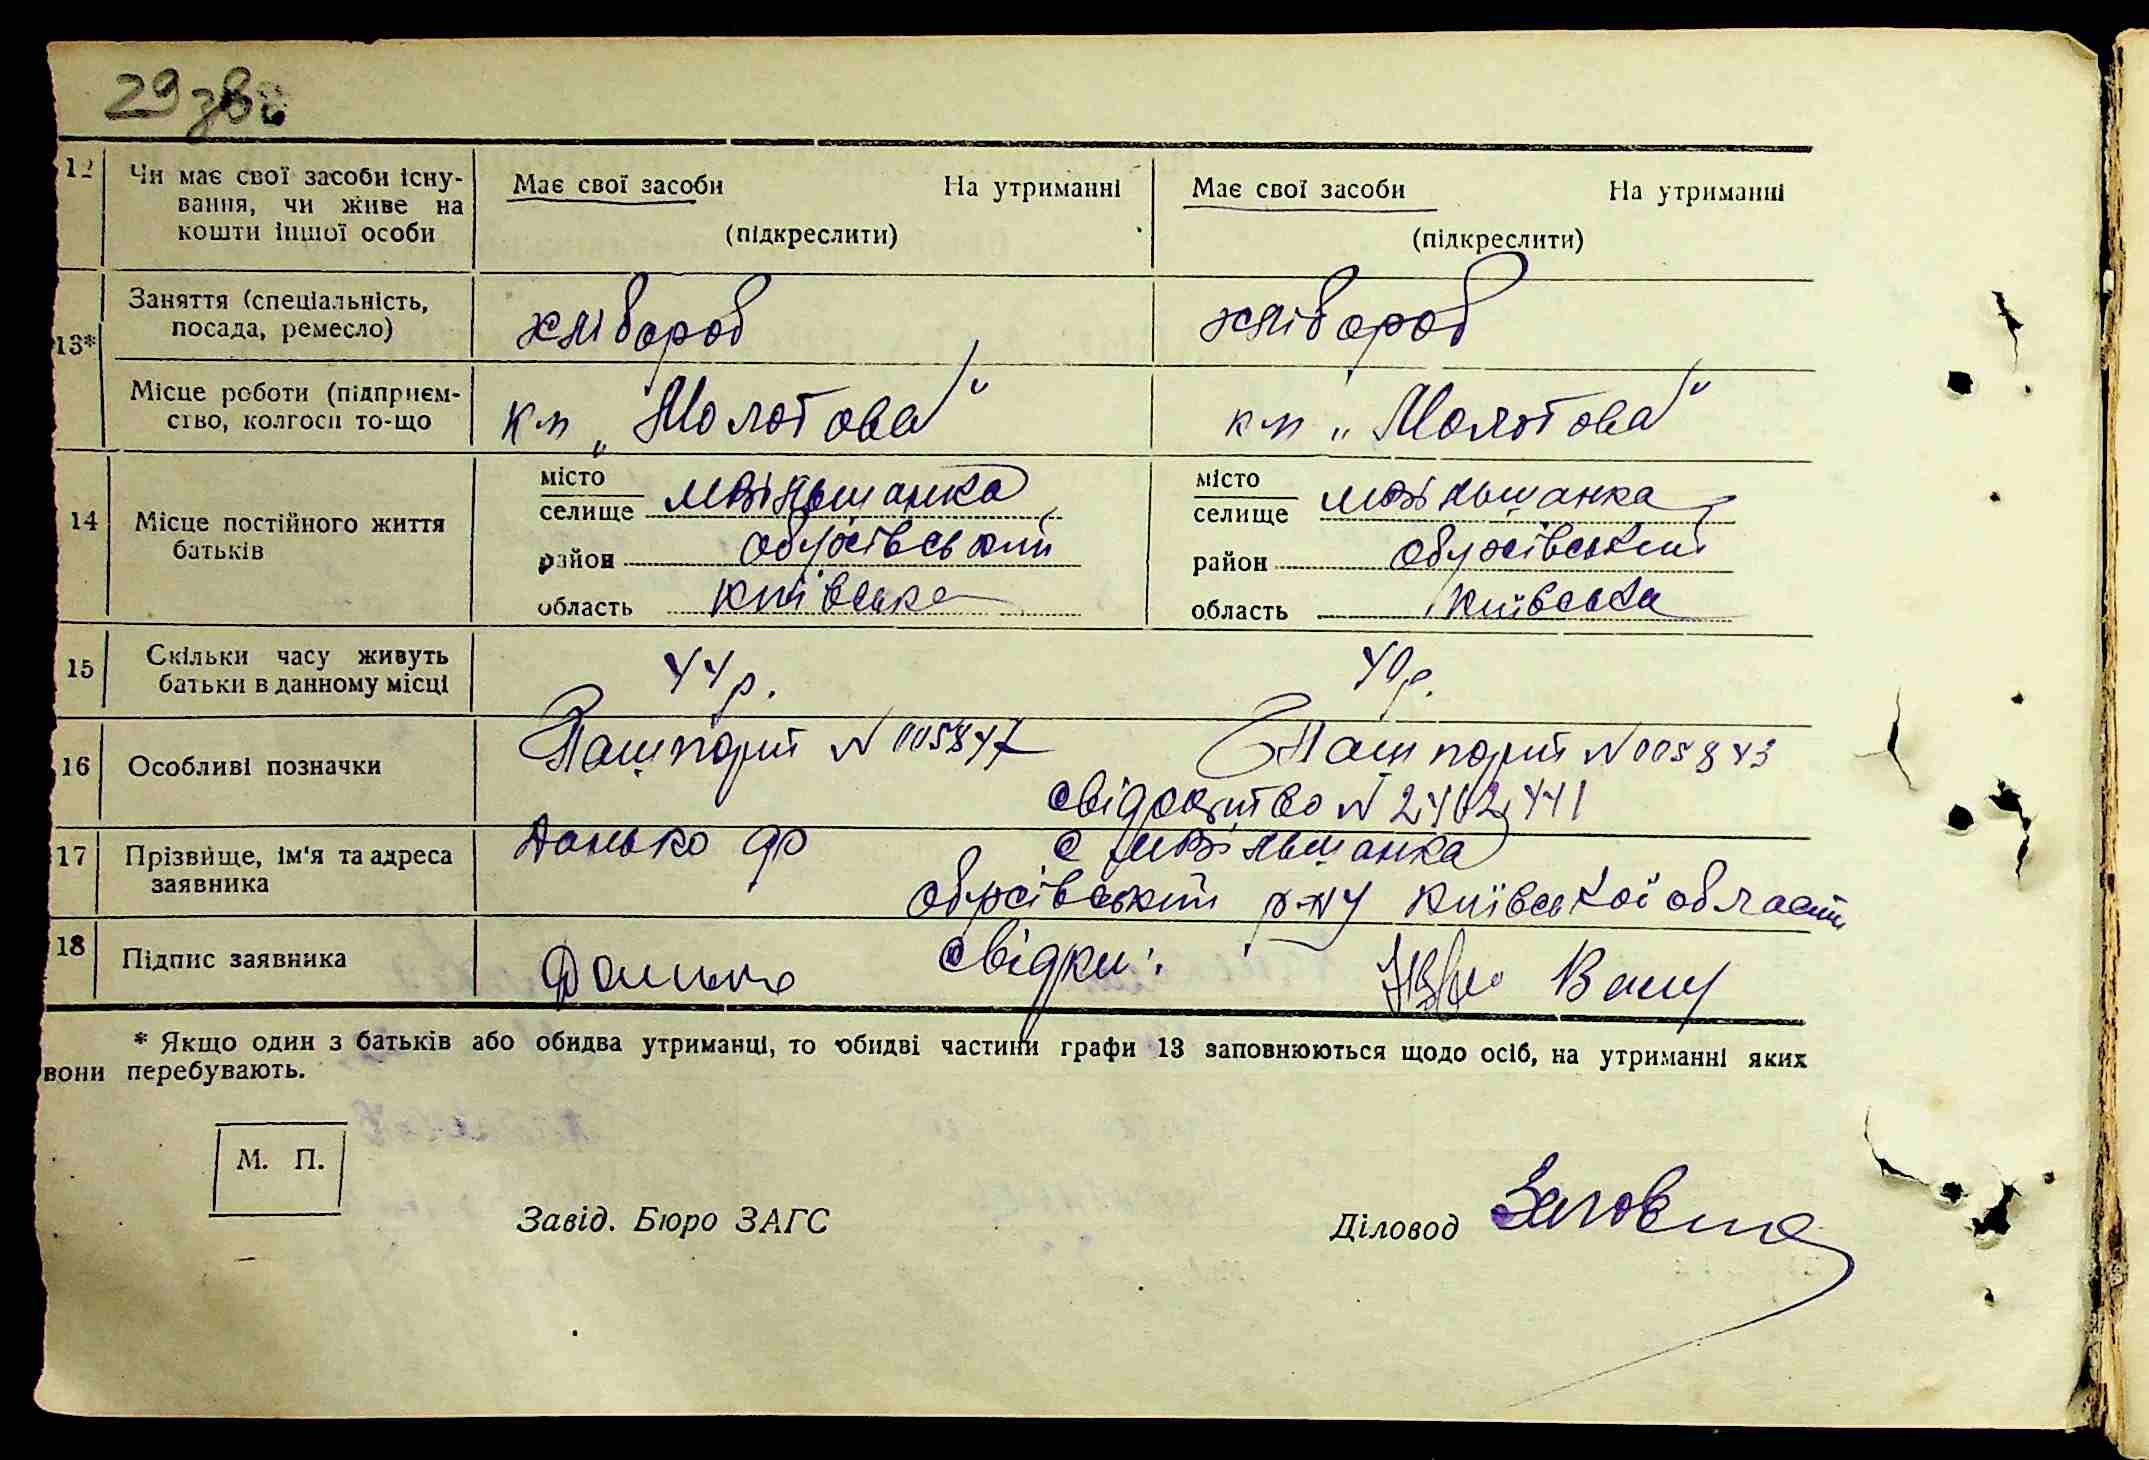 29 зв.
12 Чи має свої засоби існу-
вання, чи живе на
кошти іншої особи
Має свої засоби На утриманні
(підкреслити)
Має свої засоби На утриманні
(підкреслити)
13*
Заняття (спеціальність,
посада, ремесло)
хлібороб
хлібороб
Місце роботи (підприєм-
ство, колгосп то-що
к-п „Молотова"
к-п „Молотова"
14 Місце постійного життя
батьків
місто
селище мвільшанка
район обухівський
область київська
місто
селище мвільшанка
район обухівський
область київська
15 Скільки часу живуть
батьки в данному місці
44 р.
40 р.
16 Особливі позначки
Пашпорт N 005847
Пашпорт N 005843
свідоцтво N 2402441
17 Прізвище, ім'я та адреса
заявника
Данько с мвільшанка
обухівський р-ну київської области
18 Підпис заявника
Данько свідки:
* Якщо один з батьків або обидва утриманці, то обидві частини графи 13 заповнюються щодо осіб, на утриманні яких
вони перебувають.
М. П.
Завід. Бюро ЗАГС
Діловод